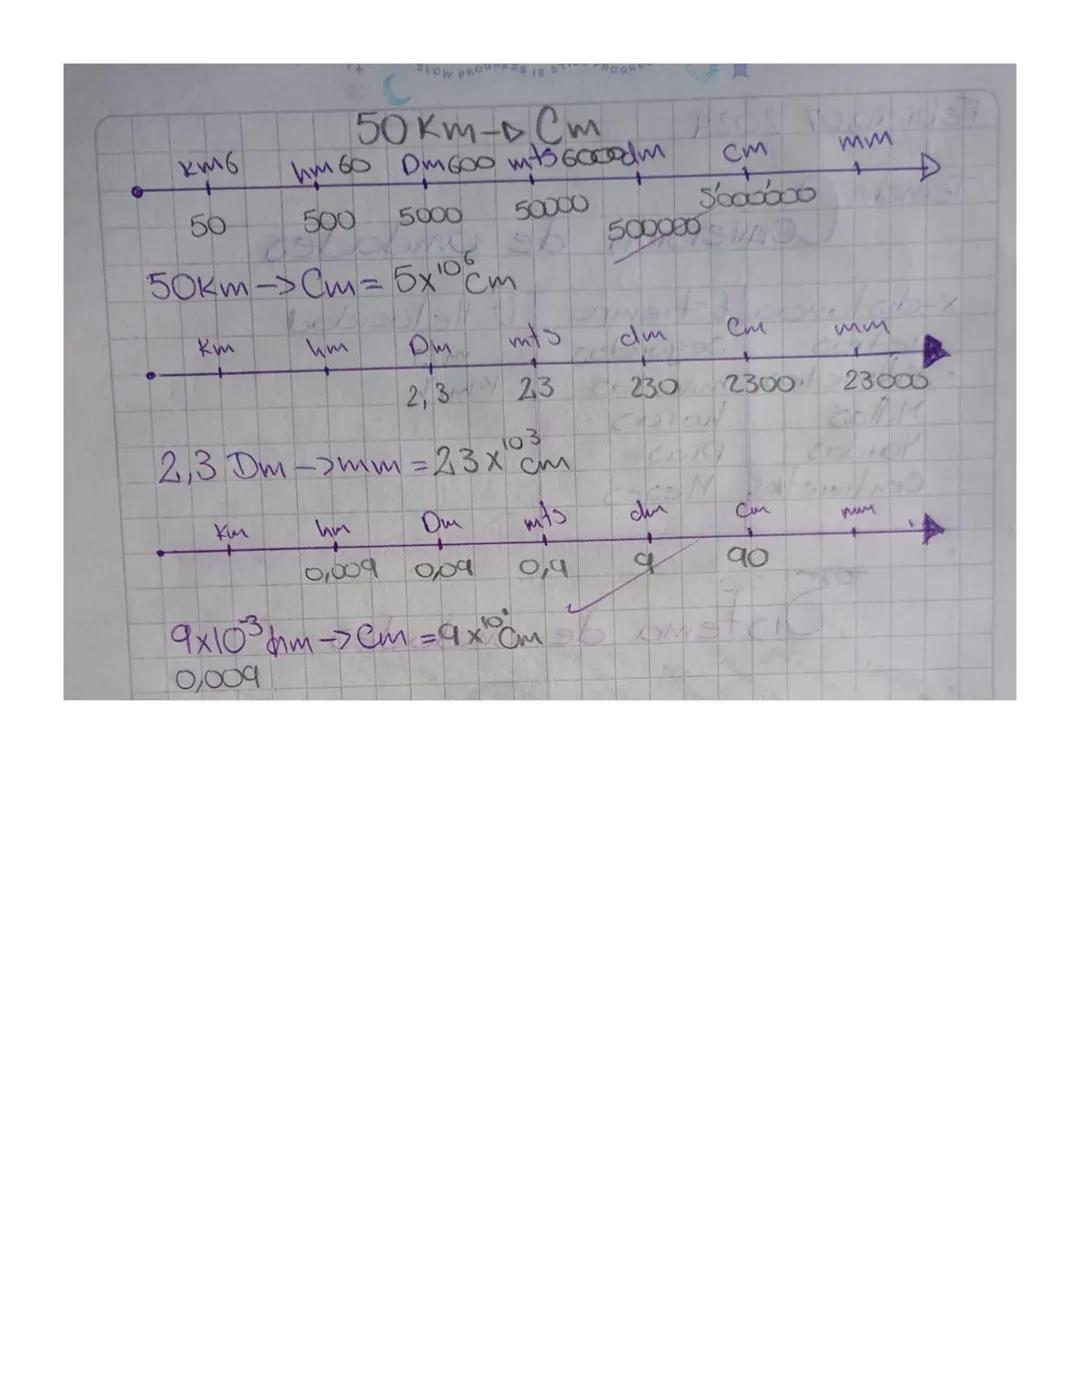 SLOW PROGRESS IS STILL PROGRESS
50 Km → Cm
Km6 hm 60 Dm 600 mts 6000 dm cm mm
50 500 5000 50000 500000 5'000'000
50Km → Cm = 5x10⁶ cm
Km hm Dm mts dm Cm mm
2,3 23 230 2300 23000
2,3 Dm → mm = 23x10³ cm
Km hm Dm mts dm Cm mm
0,009 0,09 0,9 9 90
9x10⁻³ hm → Cm = 9x10¹ Cm
0,009